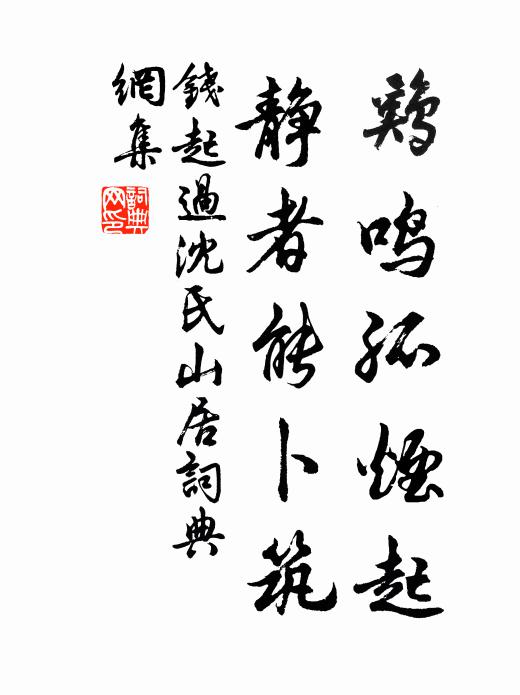 鷄鳴孤煙起
静者能卜筑
錢起過沈氏山居詞典
網集
詞典網印